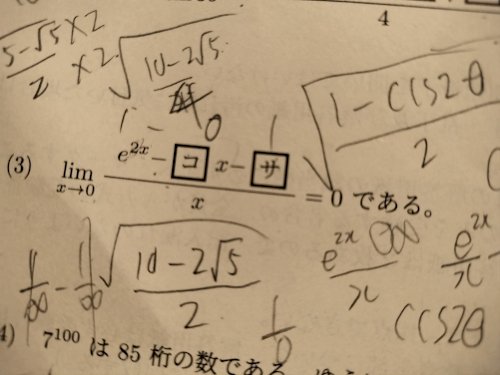 4
5-√5×2 / 2 ×2 √(10-2√5)
1 - 0 1
√(1-cos2θ / 2)
(3) lim x→0 (e^{2x} - コ x - サ) / x = 0 である。
√(10-2√5 / 2)
e^{2x} / x
e^{2x} / x -
1/0
cos2θ
4) 7^{100} は 85 桁の数である